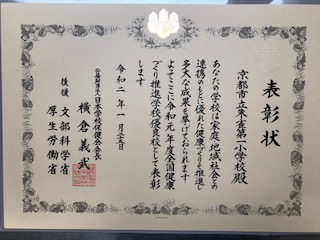 表彰状
京都市立朱雀第一小学校殿
あなたの学校は家庭、地域社会との
連携のもとに優れた健康づくりを推進し
多大な成果を挙げておられます
よってここに令和元年度全国健康
づくり推進学校優良校として表彰
します
令和二年一月二十三日
公益財団法人日本学校保健会会長
横倉義武
後援 文部科学省
厚生労働省